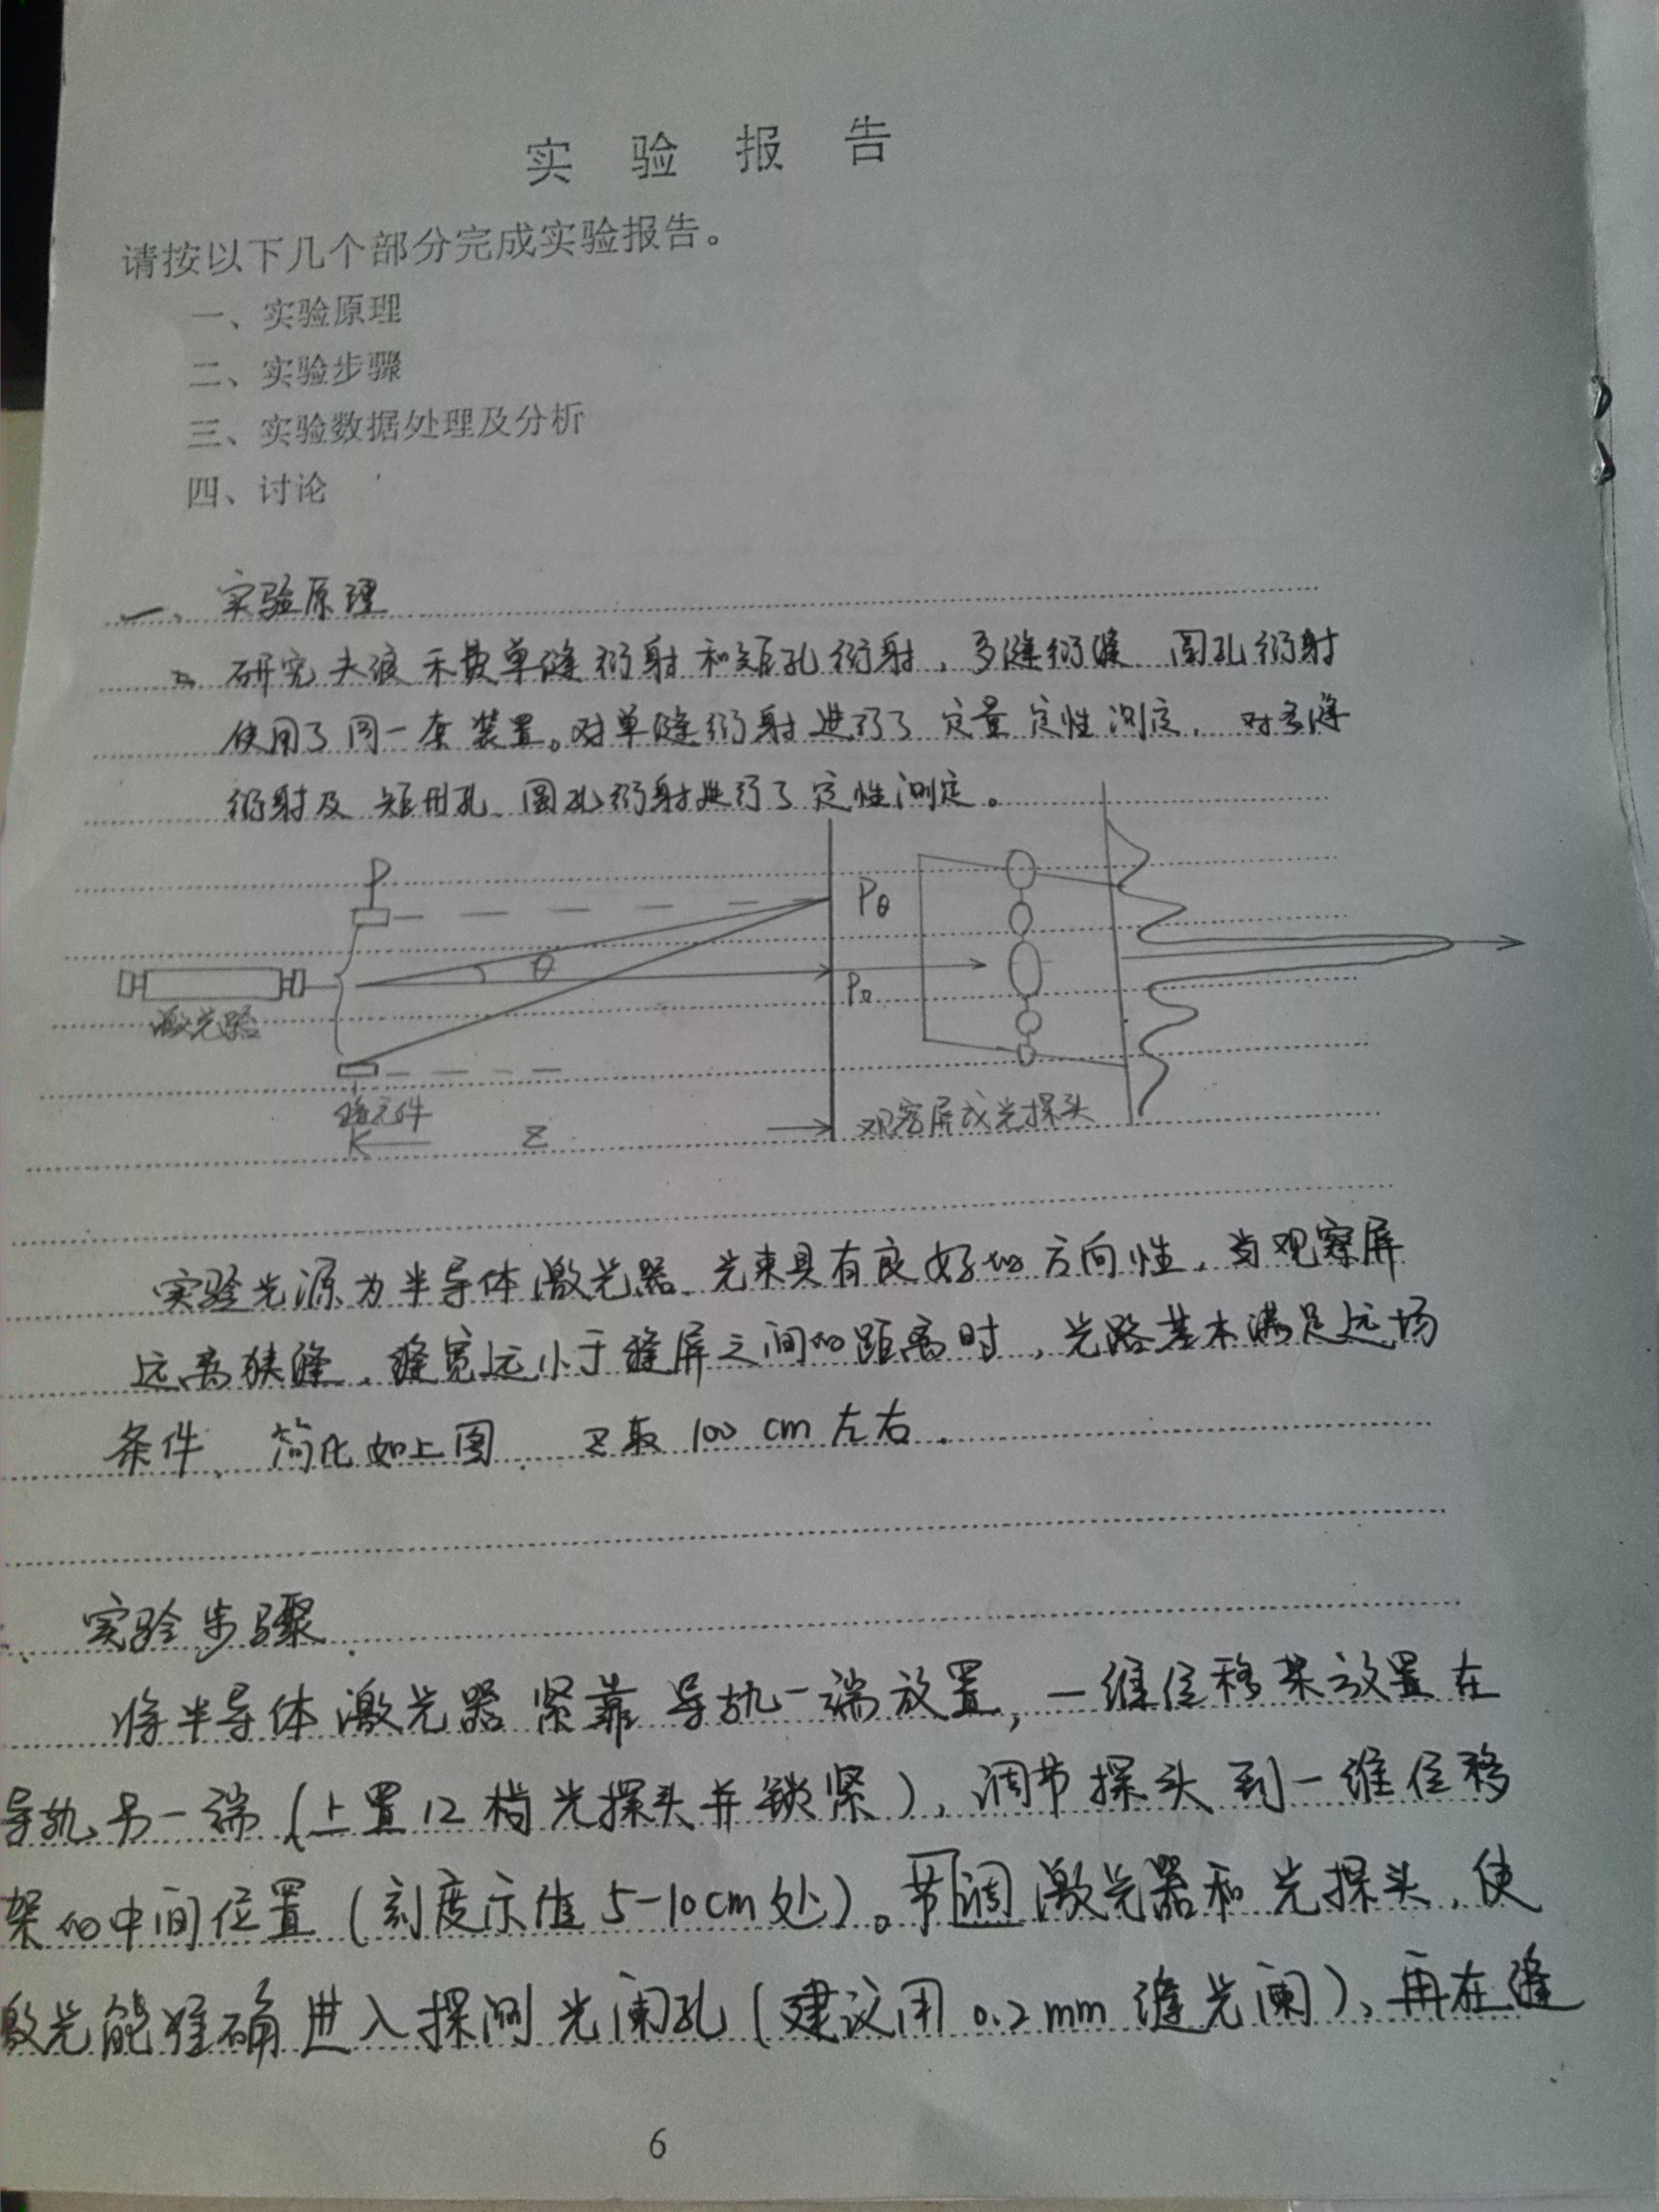 实验报告
请按以下几个部分完成实验报告。
一、实验原理
二、实验步骤
三、实验数据处理及分析
四、讨论
一、实验原理
研究夫渡禾费单缝衍射和矩孔衍射，多缝衍缝 圆孔衍射
使用了同一套装置。对单缝衍射进行了定量定性测定，对多缝
衍射及矩形孔、圆孔衍射进行了定性测定。
Pθ
θ
P0
激光器
缝元件
观察屏或光探头
K Z
实验光源为半导体激光器、光束具有良好的方向性，当观察屏
远离狭缝，缝宽远小于缝屏之间的距离时，光路基本满足远场
条件、简化如上图．Z取100cm左右．
实验步骤．
将半导体激光器紧靠导轨一端放置，一维位移架放置在
导轨另一端（上置12档光探头并锁紧），调节探头到一维位移
架的中间位置（刻度示值5-10cm处）。节调激光器和光探头，使
激光能准确进入探测光阑孔（建议用0.2mm缝光阑）、再在缝
6